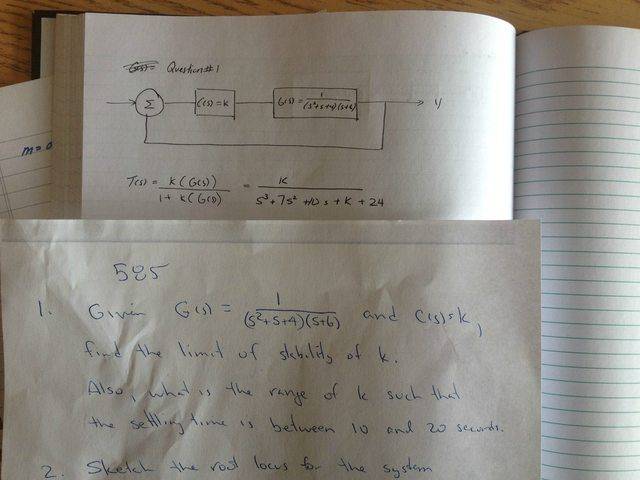 G(s)= Question #1
Σ
C(s)=k
G(s)=1/(s²+s+4)(s+6)
y
m=0
T(s) = k(G(s))/1+k(G(s)) = k/s³+7s²+10s+k+24
585
1. Given G(s) = 1/(s²+s+4)(s+6) and C(s)=k,
find the limit of stability of k.
Also, what is the range of k such that
the settling time is between 10 and 20 seconds.
2. Sketch the root locus for the system